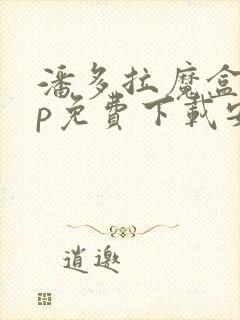 潘多拉魔盒
p免費下載安
逍邀